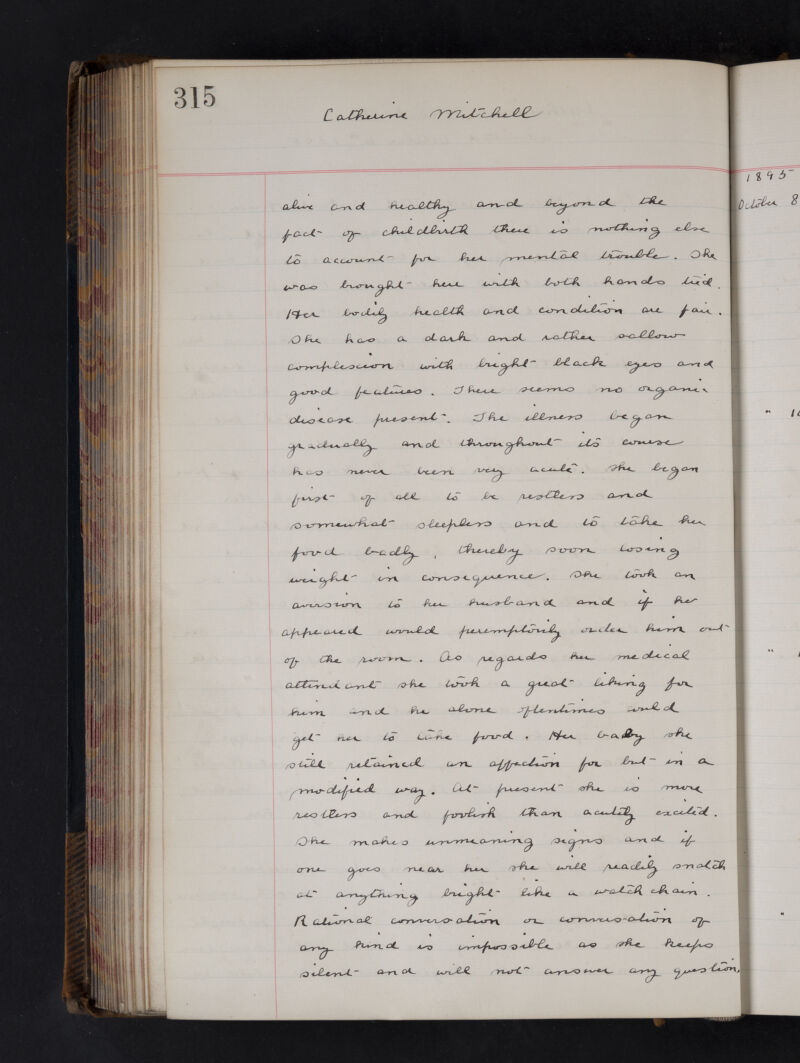 315
Catherine Mitchell
alive and healthy and beyond the
fact of childbirth there is nothing else
to account for her mental trouble. She
was brought here with both hands tied.
Her bodily health and condition are fair.
She has a dark and rather sallow
complexion with bright black eyes and
good features. There seems no organic
disease present. The illness began
gradually and throughout its course
has never been very acute. She began
first of all to be restless and
somewhat sleepless and to take her
food badly, thereby soon losing
weight in consequence. She took an
aversion to her husband and if he
appeared would peremptorily order him out
of the room. As regards her medical
attendant she took a great liking for
him and he alone oftentimes could
get her to take food. Her baby she
still retained an affection for but in a
modified way. At present she is more
restless and foolish than acutely excited.
She makes unmeaning signs and if
one goes near her she will readily snatch
at anything bright like a watch chain.
Rational conversation or conversation of
any kind is impossible as she keeps
silent and will not answer any question,
1895
October 8
" 1
"
"